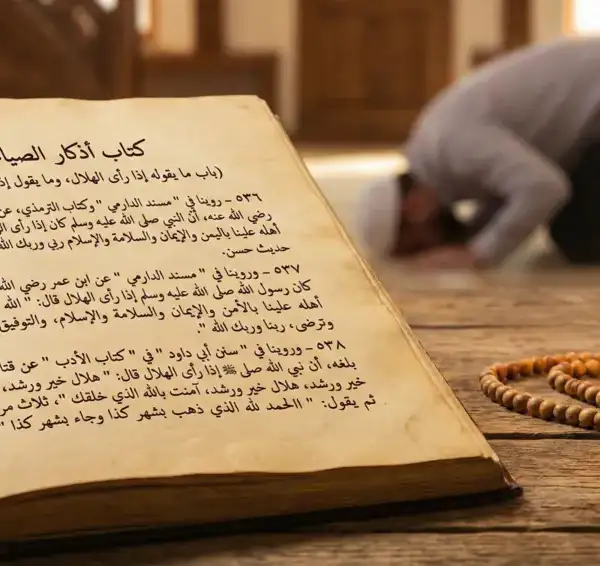 كتاب أذكار الصيا
(باب ما يقوله إذا رأى الهلال، وما يقول إذ
٥٣٦ - روينا في " مسند الدارمي " وكتاب الترمذي، عن
رضي الله عنه، أن النبي صلى الله عليه وسلم كان إذا رأى ال
أهله علينا باليمن والإيمان والسلامة والإسلام ربي وربك الله
حديث حسن.
٥٣٧ - وروينا في " مسند الدارمي " عن ابن عمر رضي الله
كان رسول الله صلى الله عليه وسلم إذا رأى الهلال قال: " الله
أهله علينا بالأمن والإيمان والسلامة والإسلام، والتوفيق
وترضى، ربنا وربك الله ".
٥٣٨ - وروينا في " سنن أبي داود " في " كتاب الأدب " عن قتا
بلغه، أن نبي الله صلى ﷺ إذا رأى الهلال قال: " هلال خير ورشد،
خير ورشد، هلال خير ورشد، آمنت بالله الذي خلقك "، ثلاث مر
ثم يقول: " االحمد لله الذي ذهب بشهر كذا وجاء بشهر كذا "